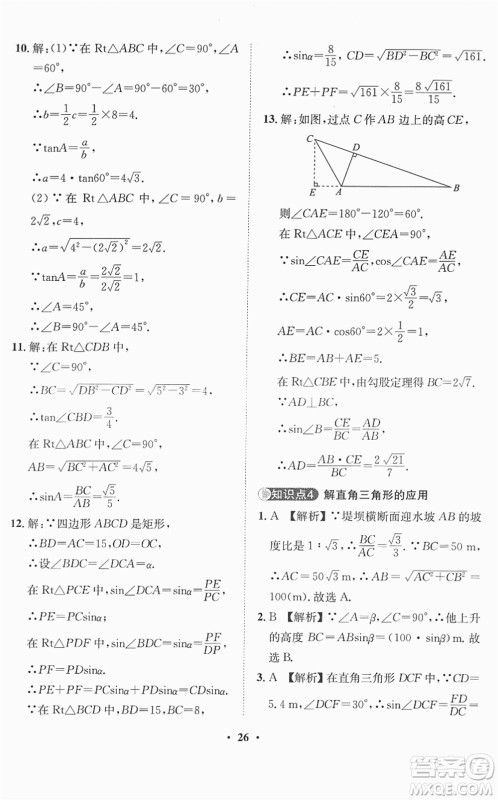 10. 解：(1)∵在 Rt△ABC 中，∠C=90°，∠A
=60°，
∴∠B=90°-∠A=90°-60°=30°，
∴b=1/2 c=1/2×8=4.
∵tanA=a/b，
∴a=4·tan60°=4√3.
(2)∵在 Rt△ABC 中，∠C=90°，b=
2√2，c=4，
∴a=√(4²-(2√2)²)=2√2，
∴tanA=a/b=2√2/2√2=1，
∴∠A=45°，
∴∠B=90°-∠A=45°.
11. 解：在 Rt△CDB 中，
∵∠C=90°，
∴BC=√(DB²-CD²)=√(5²-3²)=4，
∴tan∠CBD=3/4.
在 Rt△ABC 中，∠C=90°，
AB=√(8²+4²)=4√5，
∴sinA=BC/AB=√5/5.
12. 解：∵四边形 ABCD 是矩形，
∴BD=AC=26，
∴设∠DBC=α，
在 Rt△PCE 中，sin∠DCE=PE/PC
∴PE=PCsinα，
在 Rt△PDF 中，sin∠PDF=PF/DP，
∴PF=PDsinα，
∴PE+PF=PCsinα+PDsinα，
∴PE+PF=CDsinα=15sinα，
∵在 Rt△BCD 中，BD=15，BC=8，
∴sinα=8/15，CD=√(BD²-BC²)=√161，
∴PE+PF=√161×8/15=8/15√161.
13. 解：如图，过点 C 作 AB 边上的高 CE，
C
D
E
A
B
则∠CAE=180°-120°=60°.
在 Rt△ACE 中，
∵sin∠CAE=CE/AC，cos∠CAE=AE/AC，
∴CE=AC·sin60°=2×√3/2=√3，
AE=AC·cos60°=2×1/2=1.
在 Rt△BCE 中，由勾股定理得 BC=2√7.
∵AD⊥BC，
∴sin∠B=CE/BC=AD/AB，
∴AD=AB·CE/BC=2√21/7.
知识点4 解直角三角形的应用
1. A 【解析】∵堤坝横断面迎水坡 AB 的坡
度比是 1∶√3，∴BC/AC=1/√3，∵BC=50 m，
∴AC=50√3 m，∴AB=√(AC²+BC²)=
100(m). 故选 A.
2. B 【解析】∵∠A=β，∠C=90°，∴他上升
的高度 BC=ABsinβ=(100·sinβ)米. 故
选 B.
3. A 【解析】在直角三角形 DCF 中，∵CD=
5.4 m，∠DCF=30°，∴sin∠DCF=FD/DC=
· 26 ·